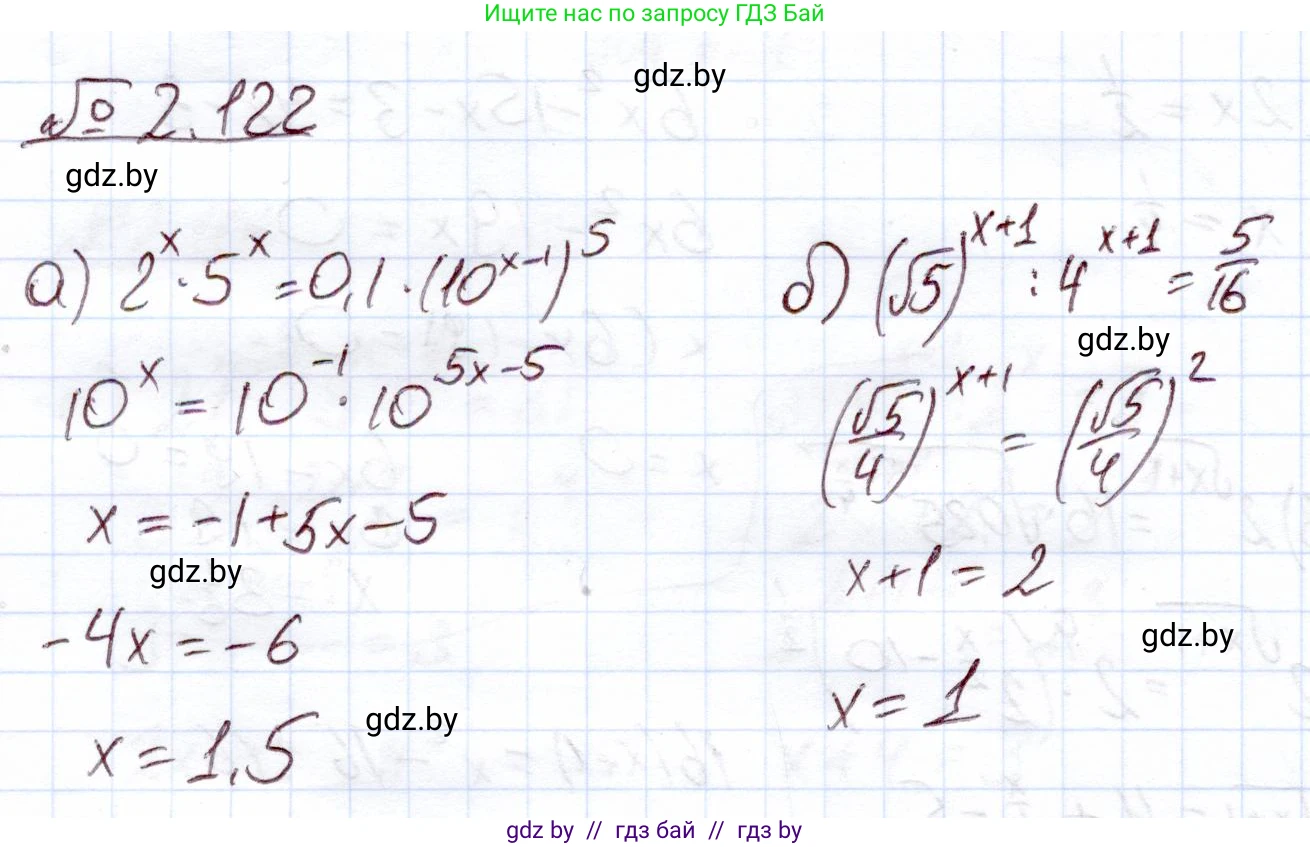 Ищите нас по запросу ГДЗ Бай
gdz.by
№ 2.122
gdz.by
а) 2^x · 5^x = 0,1 · (10^{x-1})^5
10^x = 10^{-1} · 10^{5x-5}
x = -1 + 5x - 5
gdz.by
-4x = -6
x = 1,5
gdz.by
б) (√5)^{x+1} : 4^{x+1} = 5/16
gdz.by
(√5/4)^{x+1} = (√5/4)^2
x + 1 = 2
gdz.by
x = 1
gdz by // гдз бай // gdz by